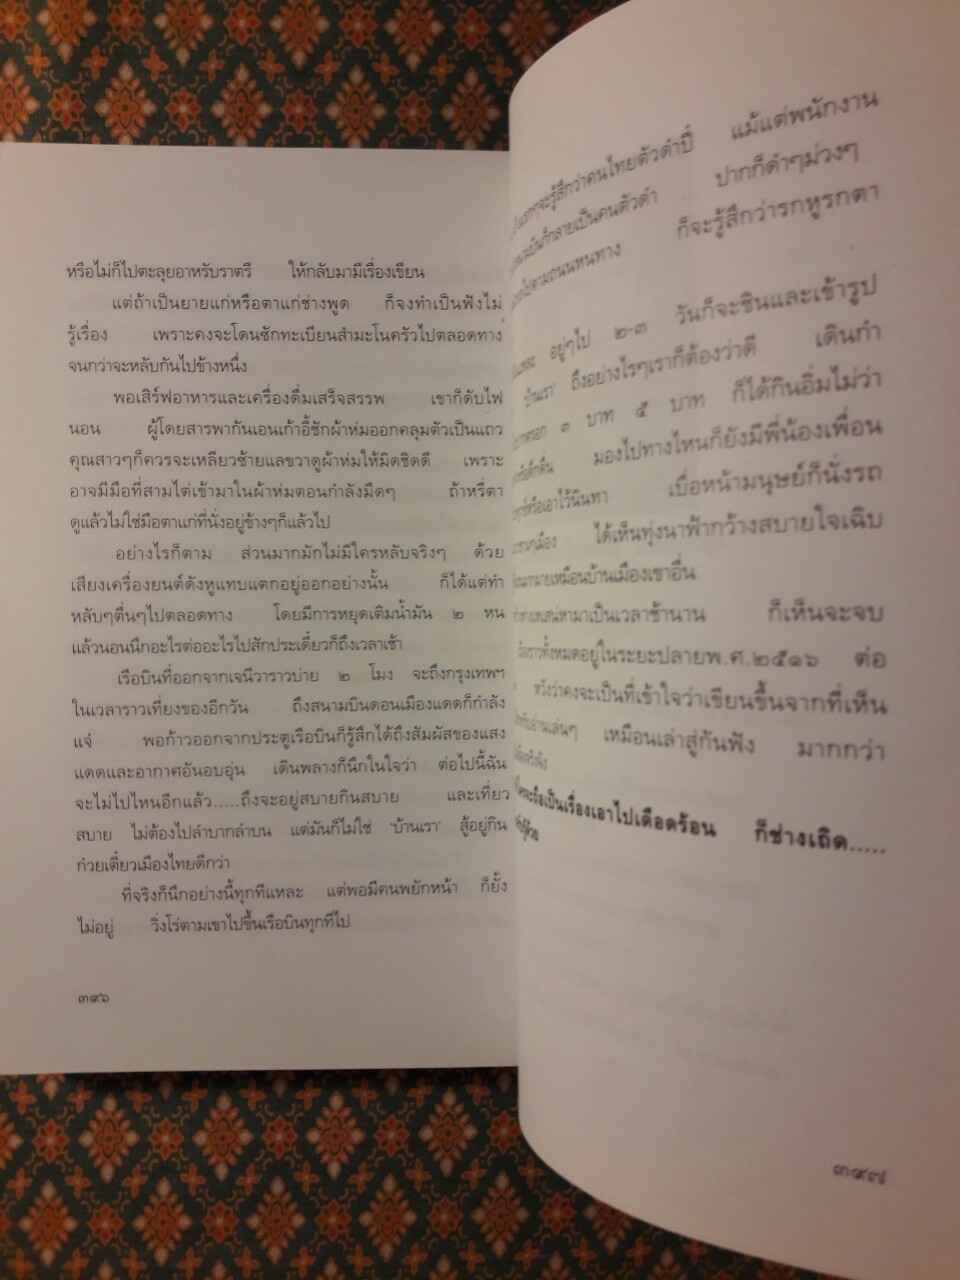 หรือไม่ก็ไปตะลุยอาหรับราตรี ให้กลับมามีเรื่องเขียน
แต่ถ้าเป็นยายแก่หรือตาแก่ช่างพูด ก็จงทำเป็นฟังไม่
รู้เรื่อง เพราะคงจะโดนซักทะเบียนสำมะโนครัวไปตลอดทาง
จนกว่าจะหลับกันไปข้างหนึ่ง
พอเสิร์ฟอาหารและเครื่องดื่มเสร็จสรรพ เขาก็ดับไฟ
นอน ผู้โดยสารพากันเอนเก้าอี้ชักผ้าห่มออกคลุมตัวเป็นแถว
คุณสาวๆก็ควรจะเหลียวซ้ายแลขวาดูผ้าห่มให้มิดชิดดี เพราะ
อาจมีมือที่สามไต่เข้ามาในผ้าห่มตอนกำลังมืดๆ ถ้าหรี่ตา
ดูแล้วไม่ใช่มือตาแก่ที่นั่งอยู่ข้างๆก็แล้วไป
อย่างไรก็ตาม ส่วนมากมักไม่มีใครหลับจริงๆ ด้วย
เสียงเครื่องยนต์ดังหูแทบแตกอยู่ออกอย่างนั้น ก็ได้แต่ทำ
หลับๆตื่นๆไปตลอดทาง โดยมีการหยุดเติมน้ำมัน ๒ หน
แล้วนอนนึกอะไรต่ออะไรไปสักประเดี๋ยวก็ถึงเวลาเช้า
เรือบินที่ออกจากเจนีวาราวบ่าย ๒ โมง จะถึงกรุงเทพฯ
ในเวลาราวเที่ยงของอีกวัน ถึงสนามบินดอนเมืองแดดก็กำลัง
แจ๋ พอก้าวออกจากประตูเรือบินก็รู้สึกได้ถึงสัมผัสของแสง
แดดและอากาศอันอบอุ่น เดินพลางก็นึกในใจว่า ต่อไปนี้ฉัน
จะไม่ไปไหนอีกแล้ว.....ถึงจะอยู่สบายกินสบาย และเที่ยว
สบาย ไม่ต้องไปลำบากลำบน แต่มันก็ไม่ใช่ 'บ้านเรา' สู้อยู่กิน
ก๋วยเตี๋ยวเมืองไทยดีกว่า
ที่จริงก็นึกอย่างนี้ทุกทีแหละ แต่พอมีคนพยักหน้า ก็ยั้ง
ไม่อยู่ วิ่งโร่ตามเขาไปขึ้นเรือบินทุกทีไป
๓๙๖
จะรู้สึกว่าคนไทยตัวดำปี๋ แม้แต่พนักงาน
ก็กลายเป็นคนตัวดำ ปากก็ดำๆม่วงๆ
ไปตามถนนหนทาง ก็จะรู้สึกว่ารกหูรกตา
อยู่ๆไป ๒-๓ วันก็จะชินและเข้ารูป
บ้านเรา' ถึงอย่างไรๆเราก็ต้องว่าดี เดินกำ
๓ บาท ๕ บาท ก็ได้กินอิ่มไม่ว่า
มองไปทางไหนก็ยังมีพี่น้องเพื่อน
เอาไว้นินทา เบื่อหน้ามนุษย์ก็นั่งรถ
ได้เห็นทุ่งนาฟ้ากว้างสบายใจเฉิบ
มากมายเหมือนบ้านเมืองเขาอื่น
มาเป็นเวลาช้านาน ก็เห็นจะจบ
ทั้งหมดอยู่ในระยะปลายพ.ศ.๒๕๑๖ ต่อ
หวังว่าคงจะเป็นที่เข้าใจว่าเขียนขึ้นจากที่เห็น
อ่านเล่นๆ เหมือนเล่าสู่กันฟัง มากกว่า
จะถือเป็นเรื่องเอาไปเดือดร้อน ก็ช่างเถิด.....
๓๙๗